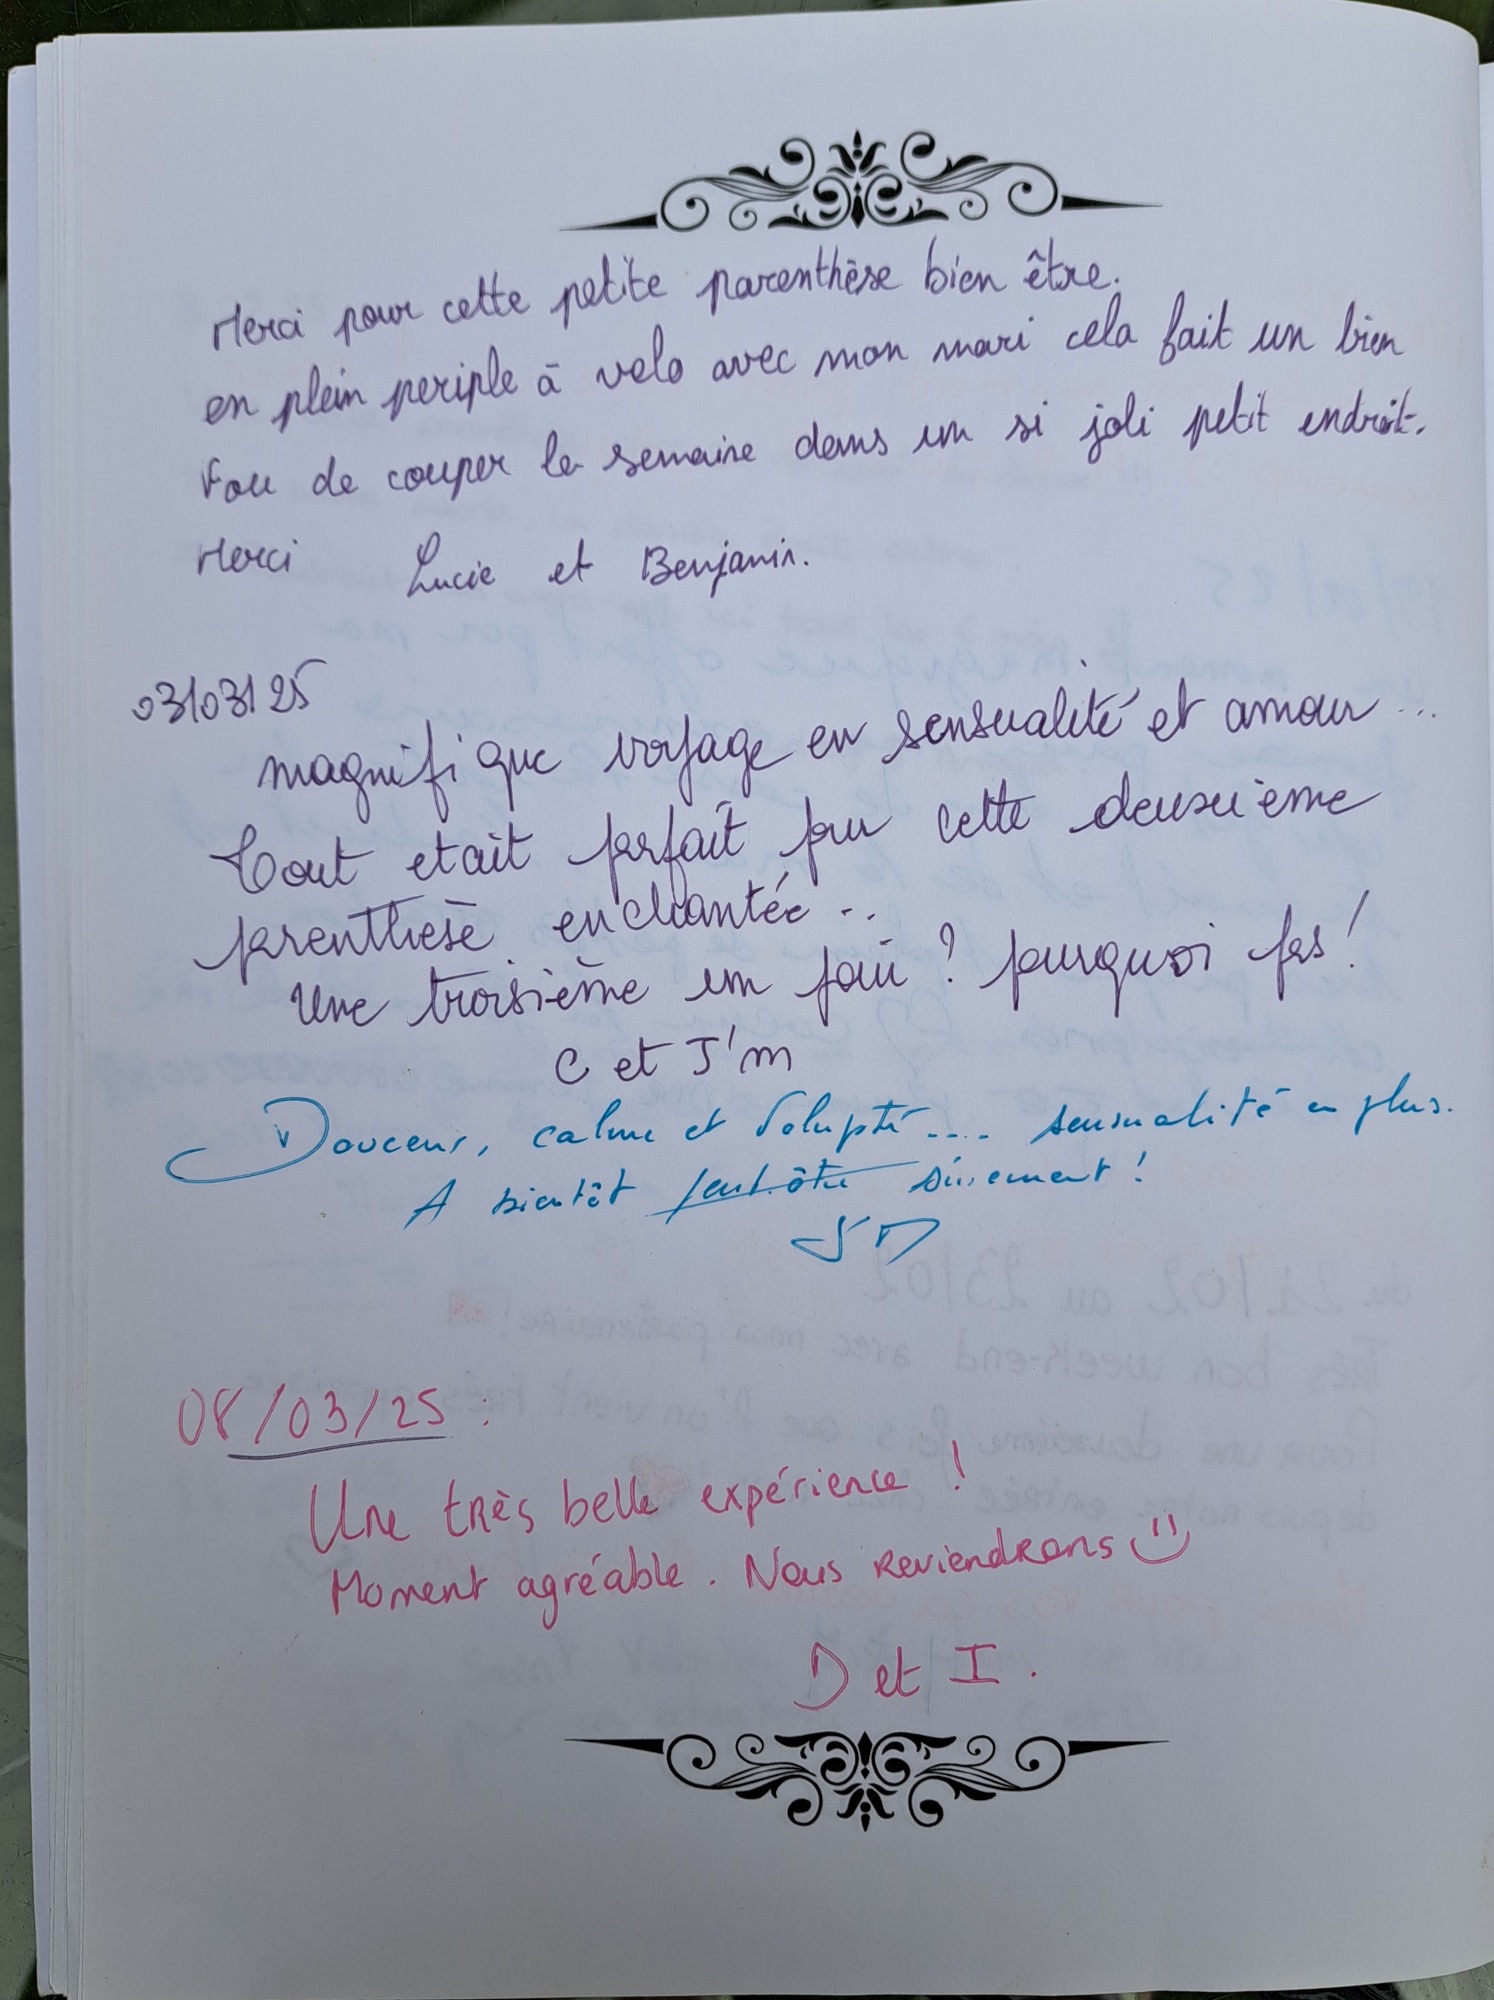 Merci pour cette petite parenthèse bien être.
en plein periple à velo avec mon mari cela fait un bien
fou de couper la semaine dans un si joli petit endroit.
Merci Lucie et Benjamin.
03/03/25
magnifique voyage en sensualité et amour...
Tout etait parfait pour cette deuxième
parenthèse enchantée..
Une troisième un jour ? pourquoi pas !
C et J'm
Douceur, calme et Volupté.... sensualité en plus.
A bientôt peut-être sûrement !
SD
08/03/25 :
Une très belle expérience !
Moment agréable. Nous reviendrons
D et I.